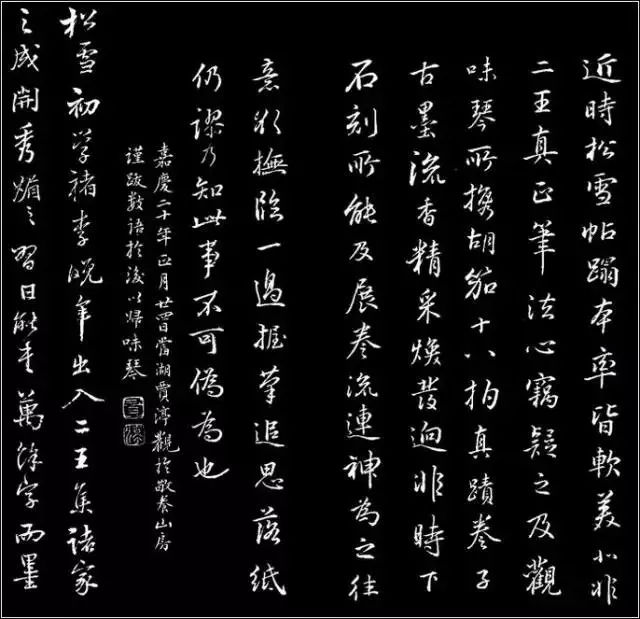 近時松雪帖蹋本率皆軟美小非
二王真正筆法心竊疑之及觀
味琴所攜胡笳十八拍真蹟卷子
古墨流香精采煥發迥非時下
石刻所能及展卷流連神為之往
意欲撫臨一過握筆追思落紙
仍謬乃知此事不可偽為也
嘉慶二十年正月廿四日當湖賈淳觀於敬養山房
謹跋數語於後以歸味琴
松雪初學褚李晚年出入二王集諸家
之成開秀媚之習日能書萬餘字而墨